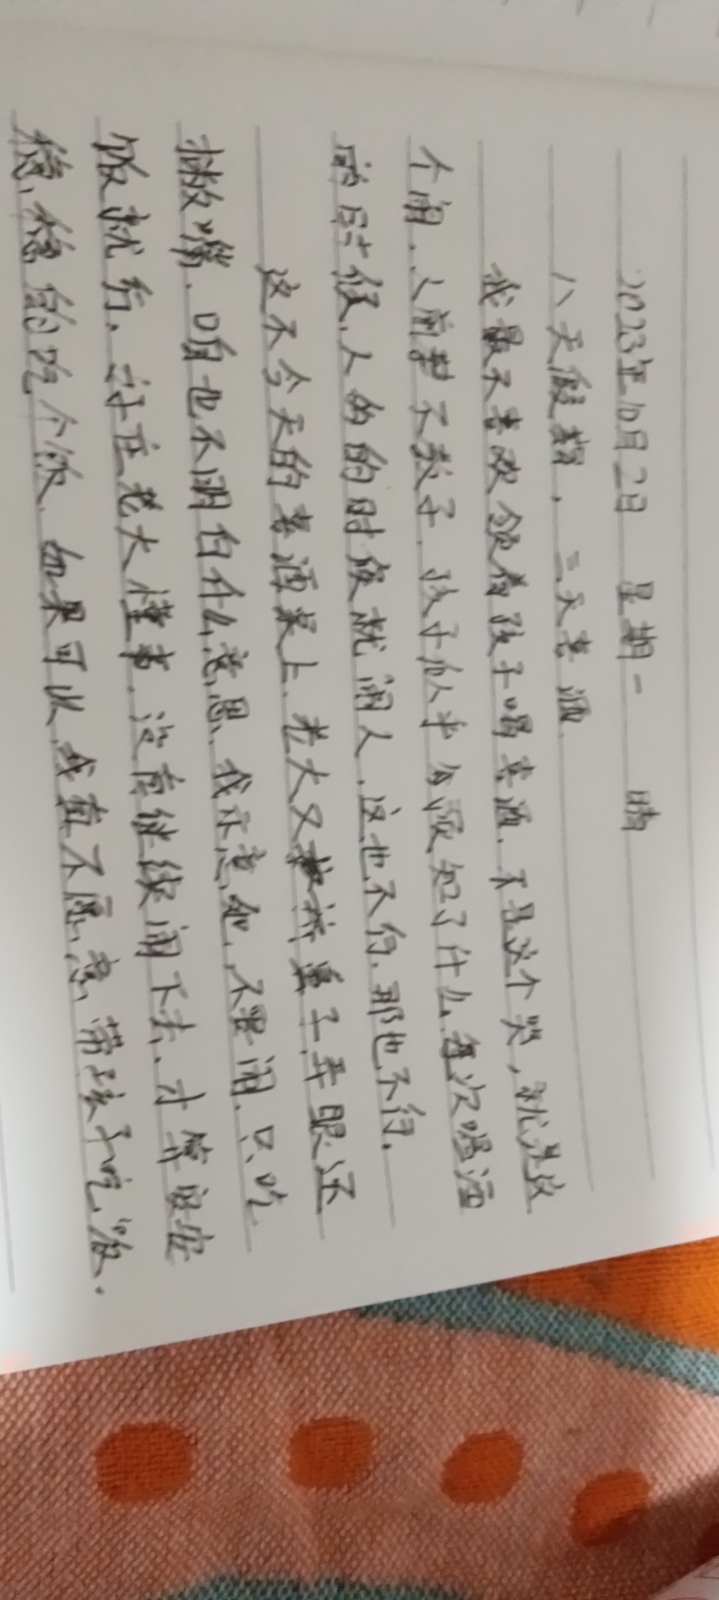 2023年10月2日 星期一 晴
八天假期,三天喜酒.
我最不喜欢领着孩子喝喜酒.不是这个哭,就是这
个闹.人前教子.孩子似乎知了什么,每次喝酒
时候.人多的时候就闹人.这也不行.那也不行.
这不今天的喜酒桌上.老大又鼻子弄眼还
撇嘴.咱也不明白什么意思.我示意她.不要闹.只吃
饭就行.好在老大懂事.没有继续闹下去.才算安安
稳,稳的吃个饭.如果可以,我真不愿意,带孩子吃饭.